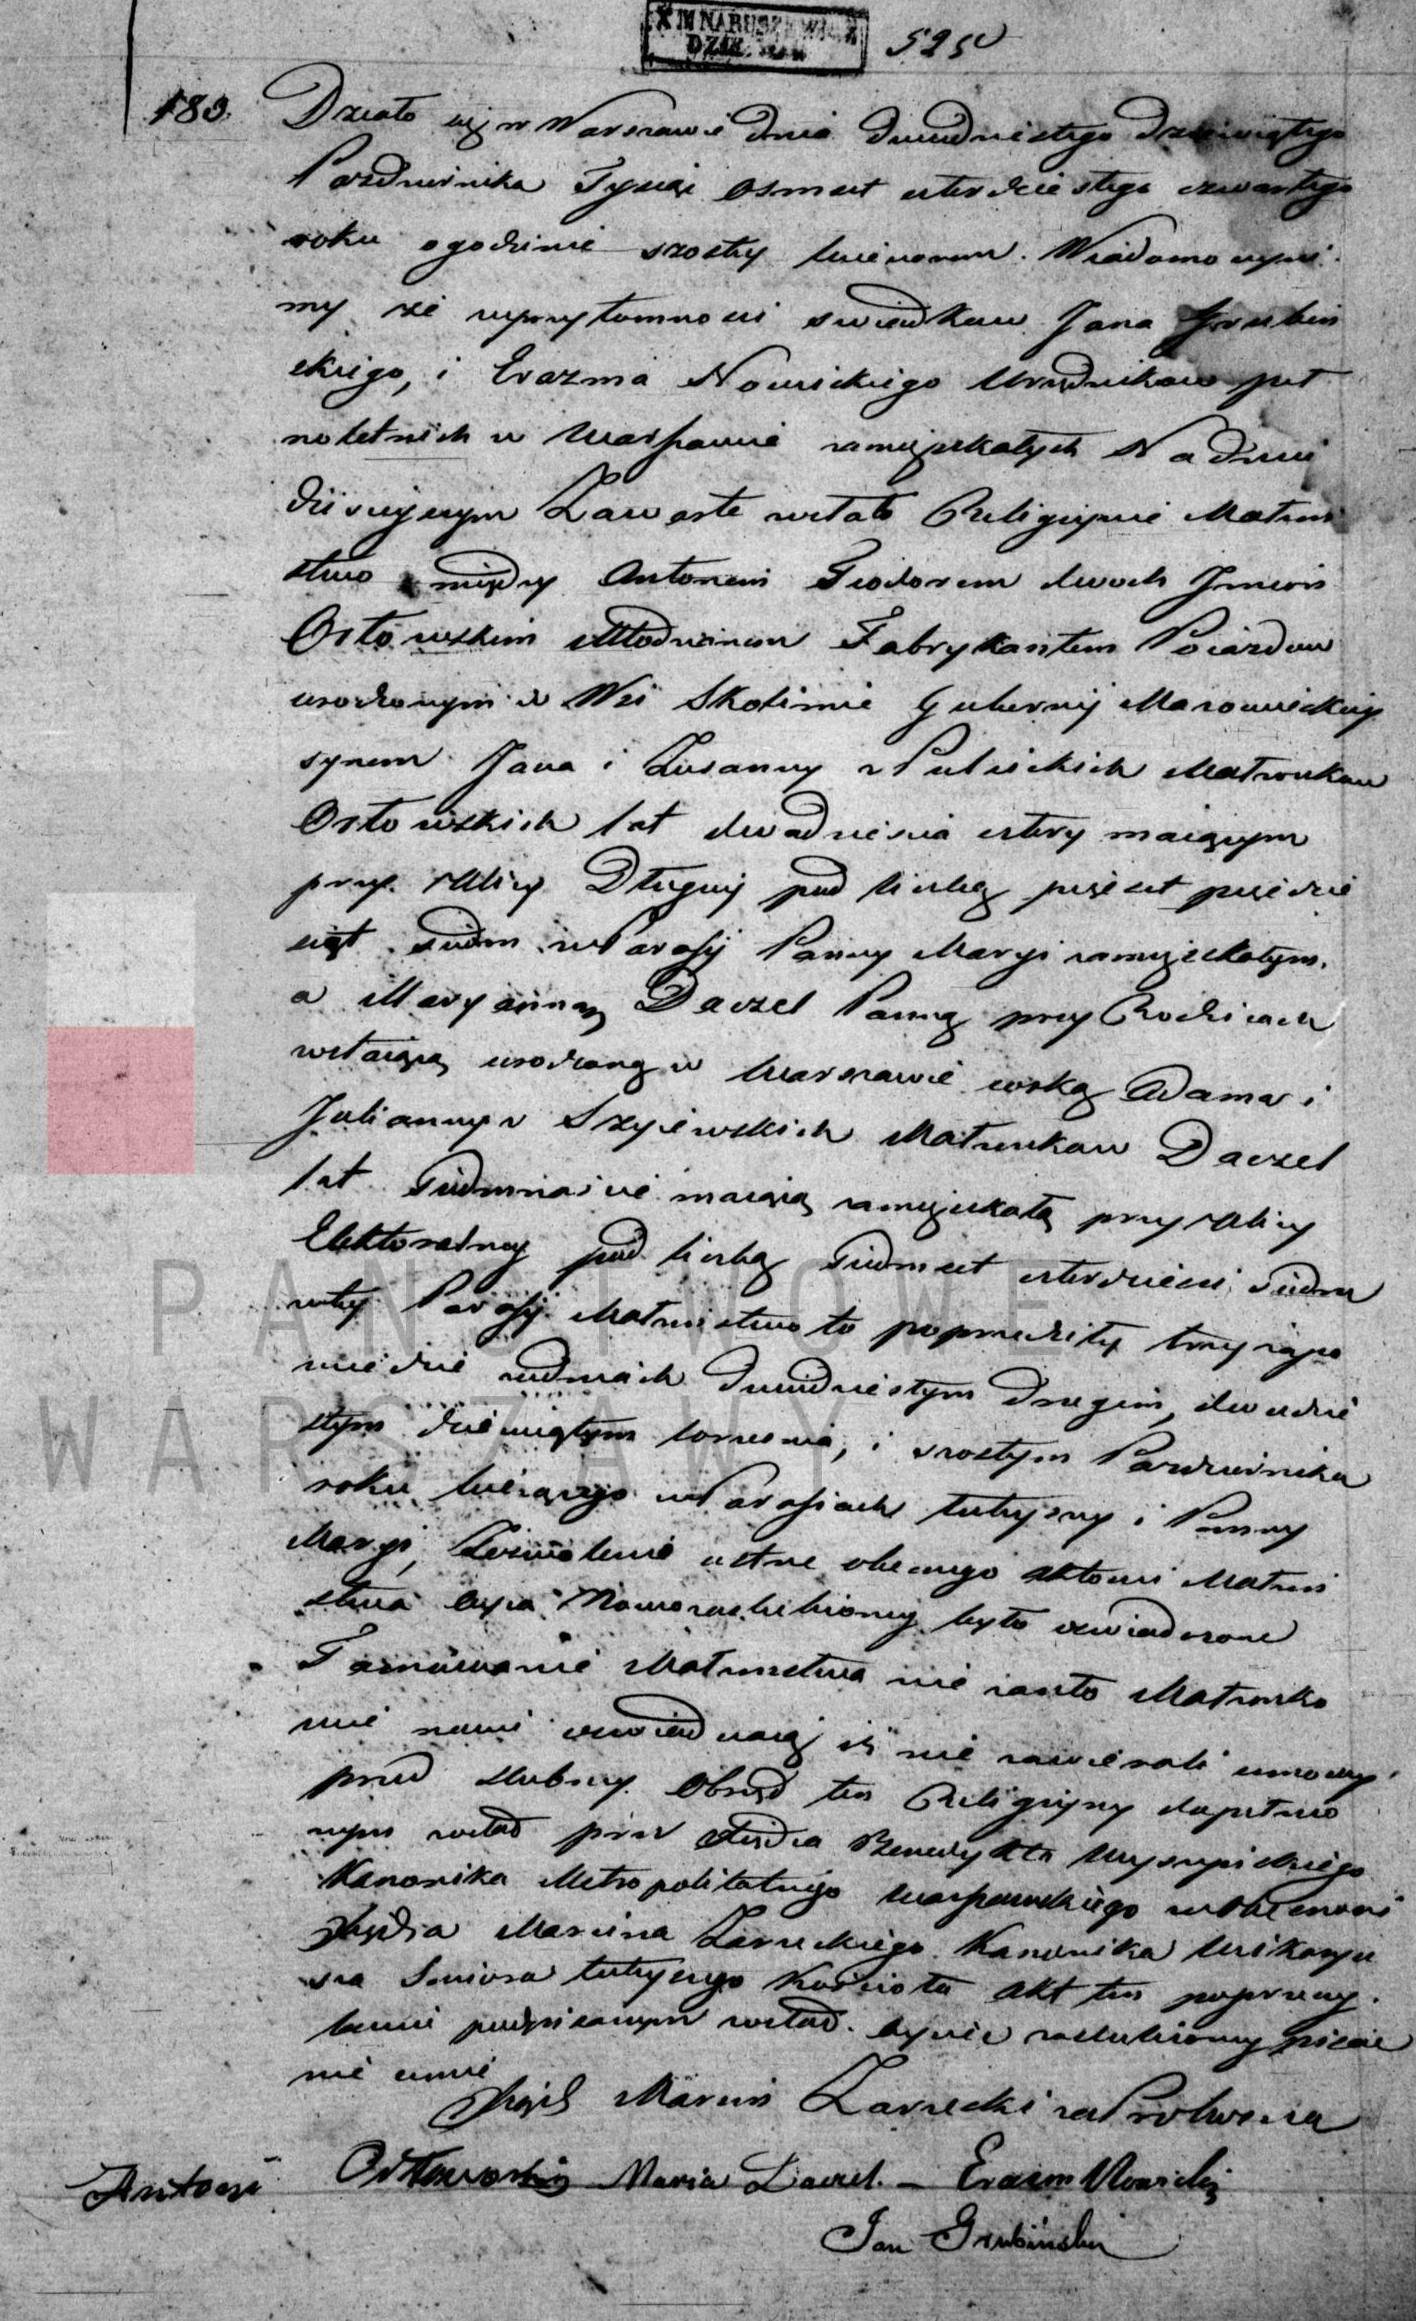 X IV NARUSZEWICZ
5250
183.
Działo się w Warszawie dnia dwudziestego dziewiątego
Pazdziernika Tysiąc osmset czterdziestego czwartego
roku o godzinie szostey wieczorem. Wiadomo czyni-
my że w przytomnosci swiadkow Jana Grubin
skiego, i Erazma Nowickiego Urzędnikow peł
noletnich w Warszawie zamięszkałych Na dniu
disieyszym Zawarte zostało Religijne Małżeń
stwo między Antonim Teodorem dwoch Imion
Orłowskim Młodzianem Fabrykantem Poiazdow
urodzonym w Wsi Skolimie Gubernij Mazowieckiej
synem Jana i Zuzanny z Małżonkow
Orłowskich lat dwadziescia cztery maiącym
przy Ulicy Długiej pod liczbą pięcset pięcdzie
siąt siedm w Parafij Panny Maryi zamięszkałym.
a Maryanną Daczel Panną przy Rodzicach
zostaiącą urodzoną w Warszawie corką Adama i
Julianny z Szyiewskich Małżonkow Daczel
lat siedmnascie maiącą zamięszkałą przy Ulicy
Elektoralney pod liczbą siedmset czterdziesci siedm
w tey Parafij. Małżenstwo to poprzedziły trzy zapo
wiedzie w dniach dwudziestym drugim, dwudzie
stym dziewiątym i szostym Pazdziernika
roku bieżącego w Parafiach tuteyszey i Panny
Maryi, Zezwolenie ustne obecnego aktowi Małżeń
stwa Oyca Nowozaslubioney było oswiadczone
Tamowanie Małżenstwa nie zaszło Małżonko
wie nowi oswiadczaią iż nie zawierali umowy
przed slubney. Obrzęd ten Religijny dopełnio
nym został przez Xiędza Benedykta Wyszynskiego
Kanonika Metropolitalnego Warszawskiego w obecnosci
Xiędza Marcina Zarzeckiego Kanonika Wikaryu
sza Seniora tuteyszego Kościoła Akt ten po przeczy-
taniu podpisanym został. Oyciec zaslubioney pisac
nie umie
Xiądz Marcin Zarzecki za Proboszcza
Antoni Orłowski Maria Daczel. – Erazm Nowicki
Jan Grubiński
PAŃSTWOWE
WARSZAWY